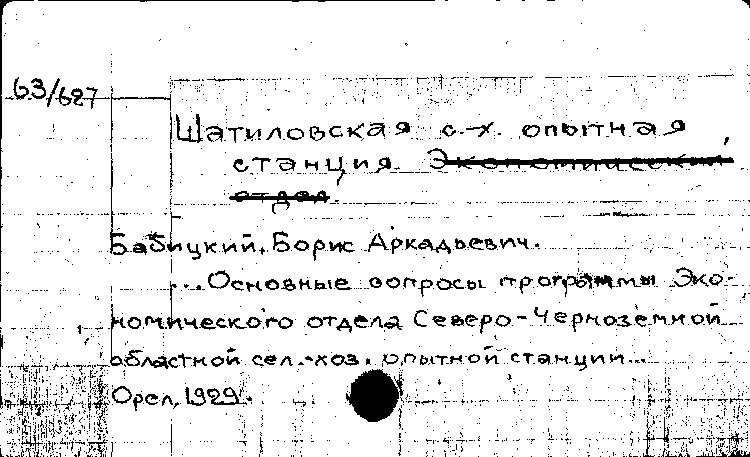 63/627
Шатиловская с.-х. опытная
станция. Экономический
отдел.
Бабицкий, Борис Аркадьевич.
...Основные вопросы программы Эко-
номического отдела Северо-Черноземной
областной сел.-хоз. опытной станции...
Орел, 1929.